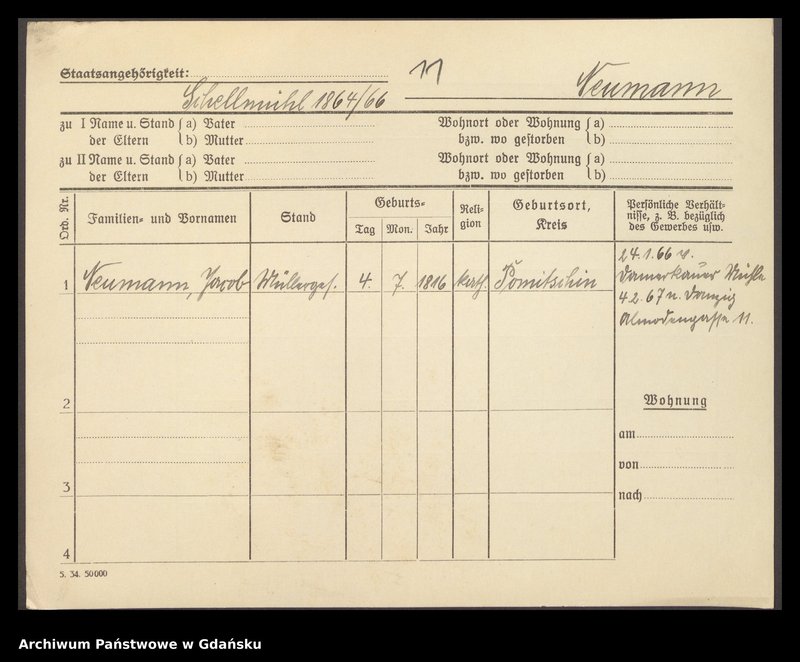 Staatsangehörigkeit:
Schellmühl 1864/66
Neumann
zu I Name u. Stand { a) Vater
der Eltern { b) Mutter
Wohnort oder Wohnung { a)
bzw. wo gestorben { b)
zu II Name u. Stand { a) Vater
der Eltern { b) Mutter
Wohnort oder Wohnung { a)
bzw. wo gestorben { b)
Ord. Nr.
Familien- und Vornamen
Stand
Geburts-
Tag Mon. Jahr
Reli-
gion
Geburtsort,
Kreis
Persönliche Verhält-
nisse, z. B. bezüglich
des Gewerbes usw.
1 Neumann, Jacob Müllerges. 4. 7. 1816 kath. Pomitschin
24.1.66 v.
Damerkauer Mühle
4 2. 67 n. Danzig
Almodengasse 11.
2
3
4
Wohnung
am
von
nach
5. 34. 50000
Archiwum Państwowe w Gdańsku